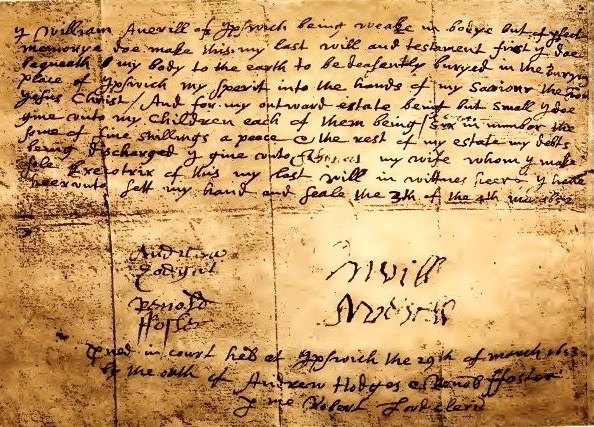 y William Averill of Ipswich being weake in bodye but of pfect
memorye doe make this my last will and testament first y doe
bequeath my body to the earth to be deasently buryed in the burying
place of Ipswich my sperit into the hands of my Saviour the
Jesus Christ / And for my outward estate being but small y doe
give unto my children each of them being / in number the
some of five shillings a peece the rest of my estate my debts
being discharged y give unto my wife whom y make
sole Executrix of this my last will in wittnes heer y have
heerunto sett my hand and seale the 3th of the 4th
Andrew
Renold
ffoster
will
in court held at Ipswich the 29th of march 1653
by the oath of Andrew Hodges & Renold ffoster
me Robert Lord cleric